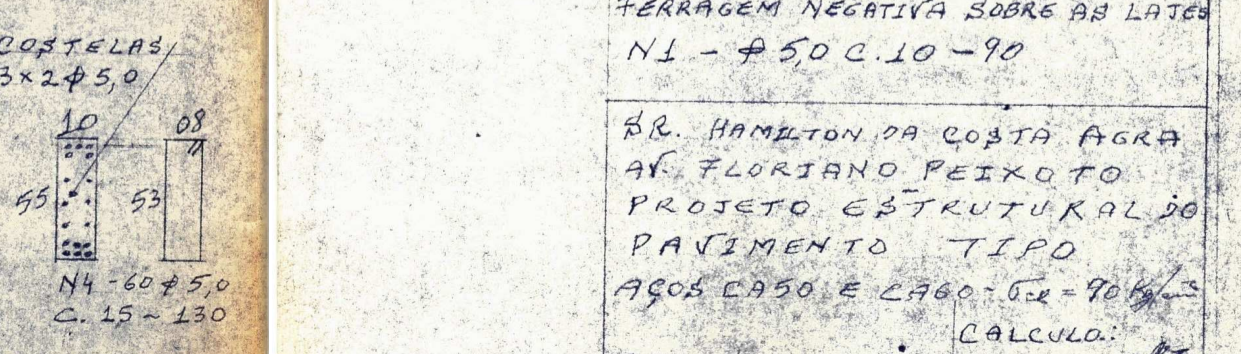 COSTELAS
3x2 ϕ 5,0
10
08
55
53
N4 - 60 ϕ 5,0
C. 15 ~ 130
FERRAGEM NEGATIVA SOBRE AS LAJES
N1 - ϕ 5,0 C.10 - 90
SR. HAMILTON DA COSTA AGRA
AV. FLORIANO PEIXOTO
PROJETO ESTRUTURAL DO
PAVIMENTO TIPO
AÇOS CA50 E CA60
CALCULO: